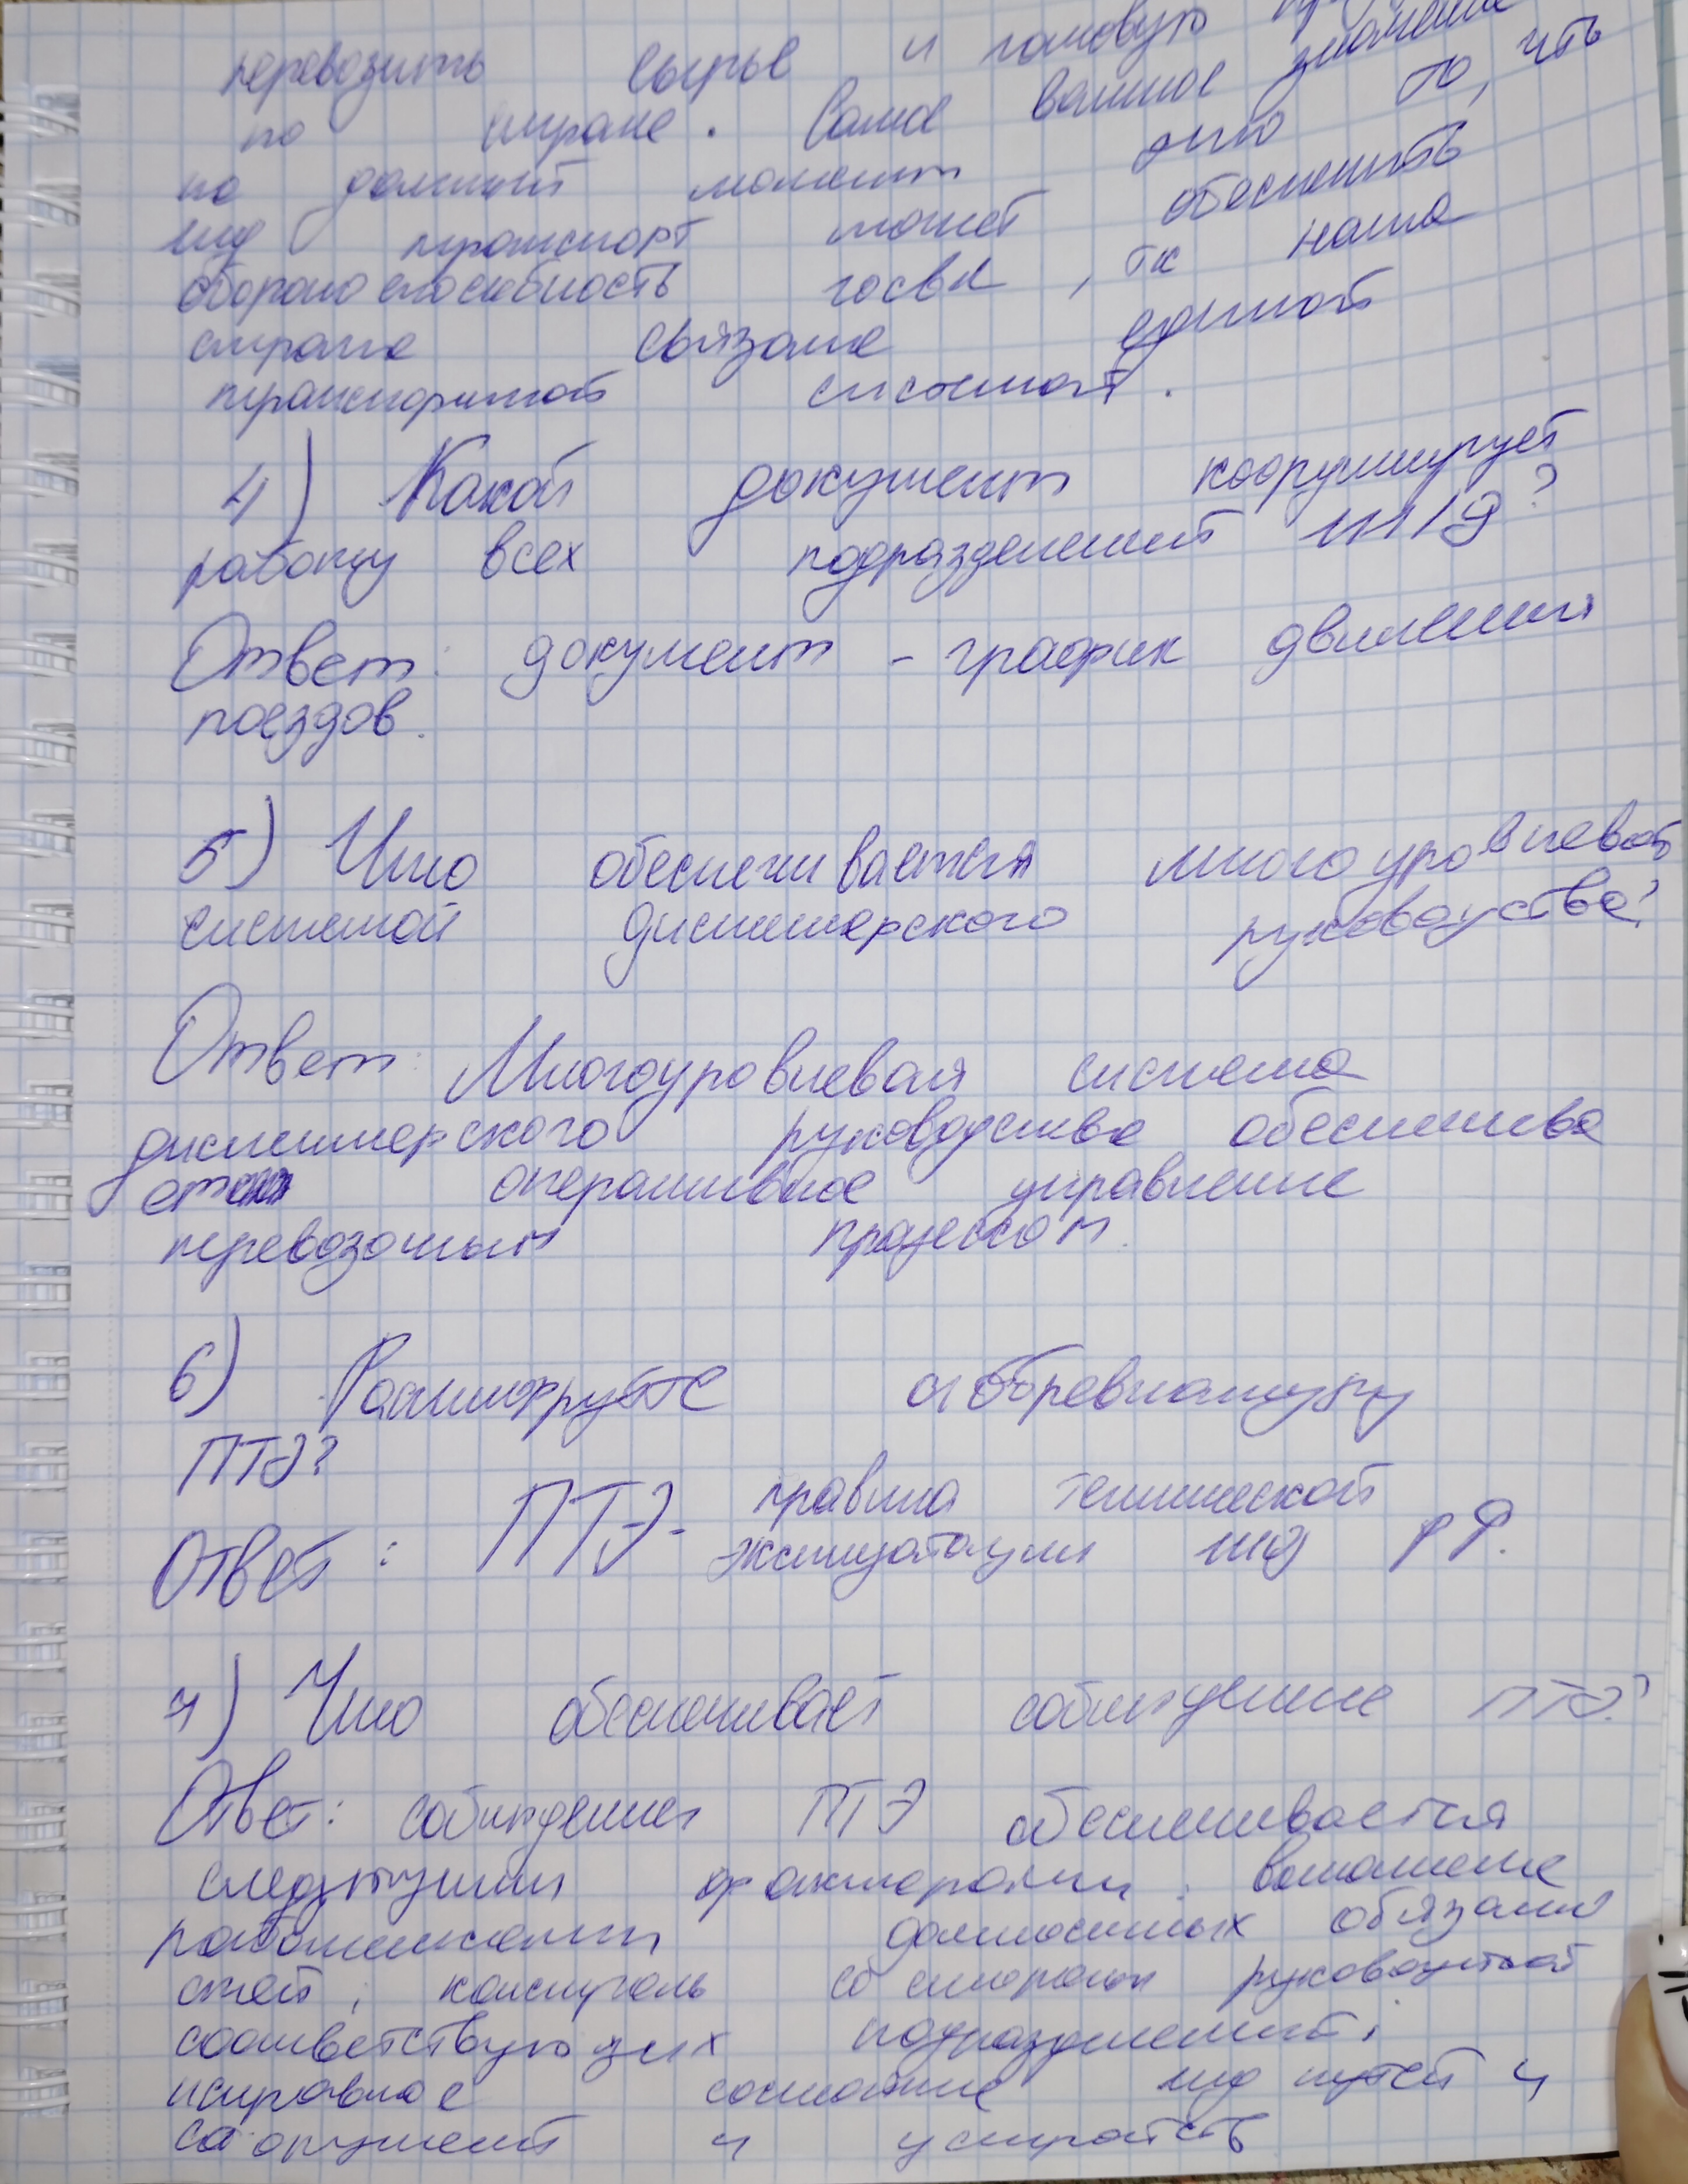 перевозить сырье и готовую
по стране. Самое важное значение
на данный момент это то, что
жд транспорт может обеспечить
обороноспособность госва, тк наша
страна связана единой
транспортной системой.
4) Какой документ координирует
работу всех подразделений ЖД?
Ответ: документ - график движения
поездов.
5) Что обеспечивается многоуровневой
системой диспетчерского руководства?
Ответ: Многоуровневая система
диспетчерского руководства обеспечива
ет оперативное управление
перевозочным процессом.
6) Расшифруйте аббревиатуру
ПТЭ?
Ответ: ПТЭ - правила технической
эксплуатации жд РФ.
7) Что обеспечивает соблюдение ПТЭ?
Ответ: соблюдения ПТЭ обеспечивается
следующими факторами: выполнение
работниками должностных обязанно
стей, контроль со стороны
соответствующих подразделений,
исправное состояние жд путей и
сооружений и устройств